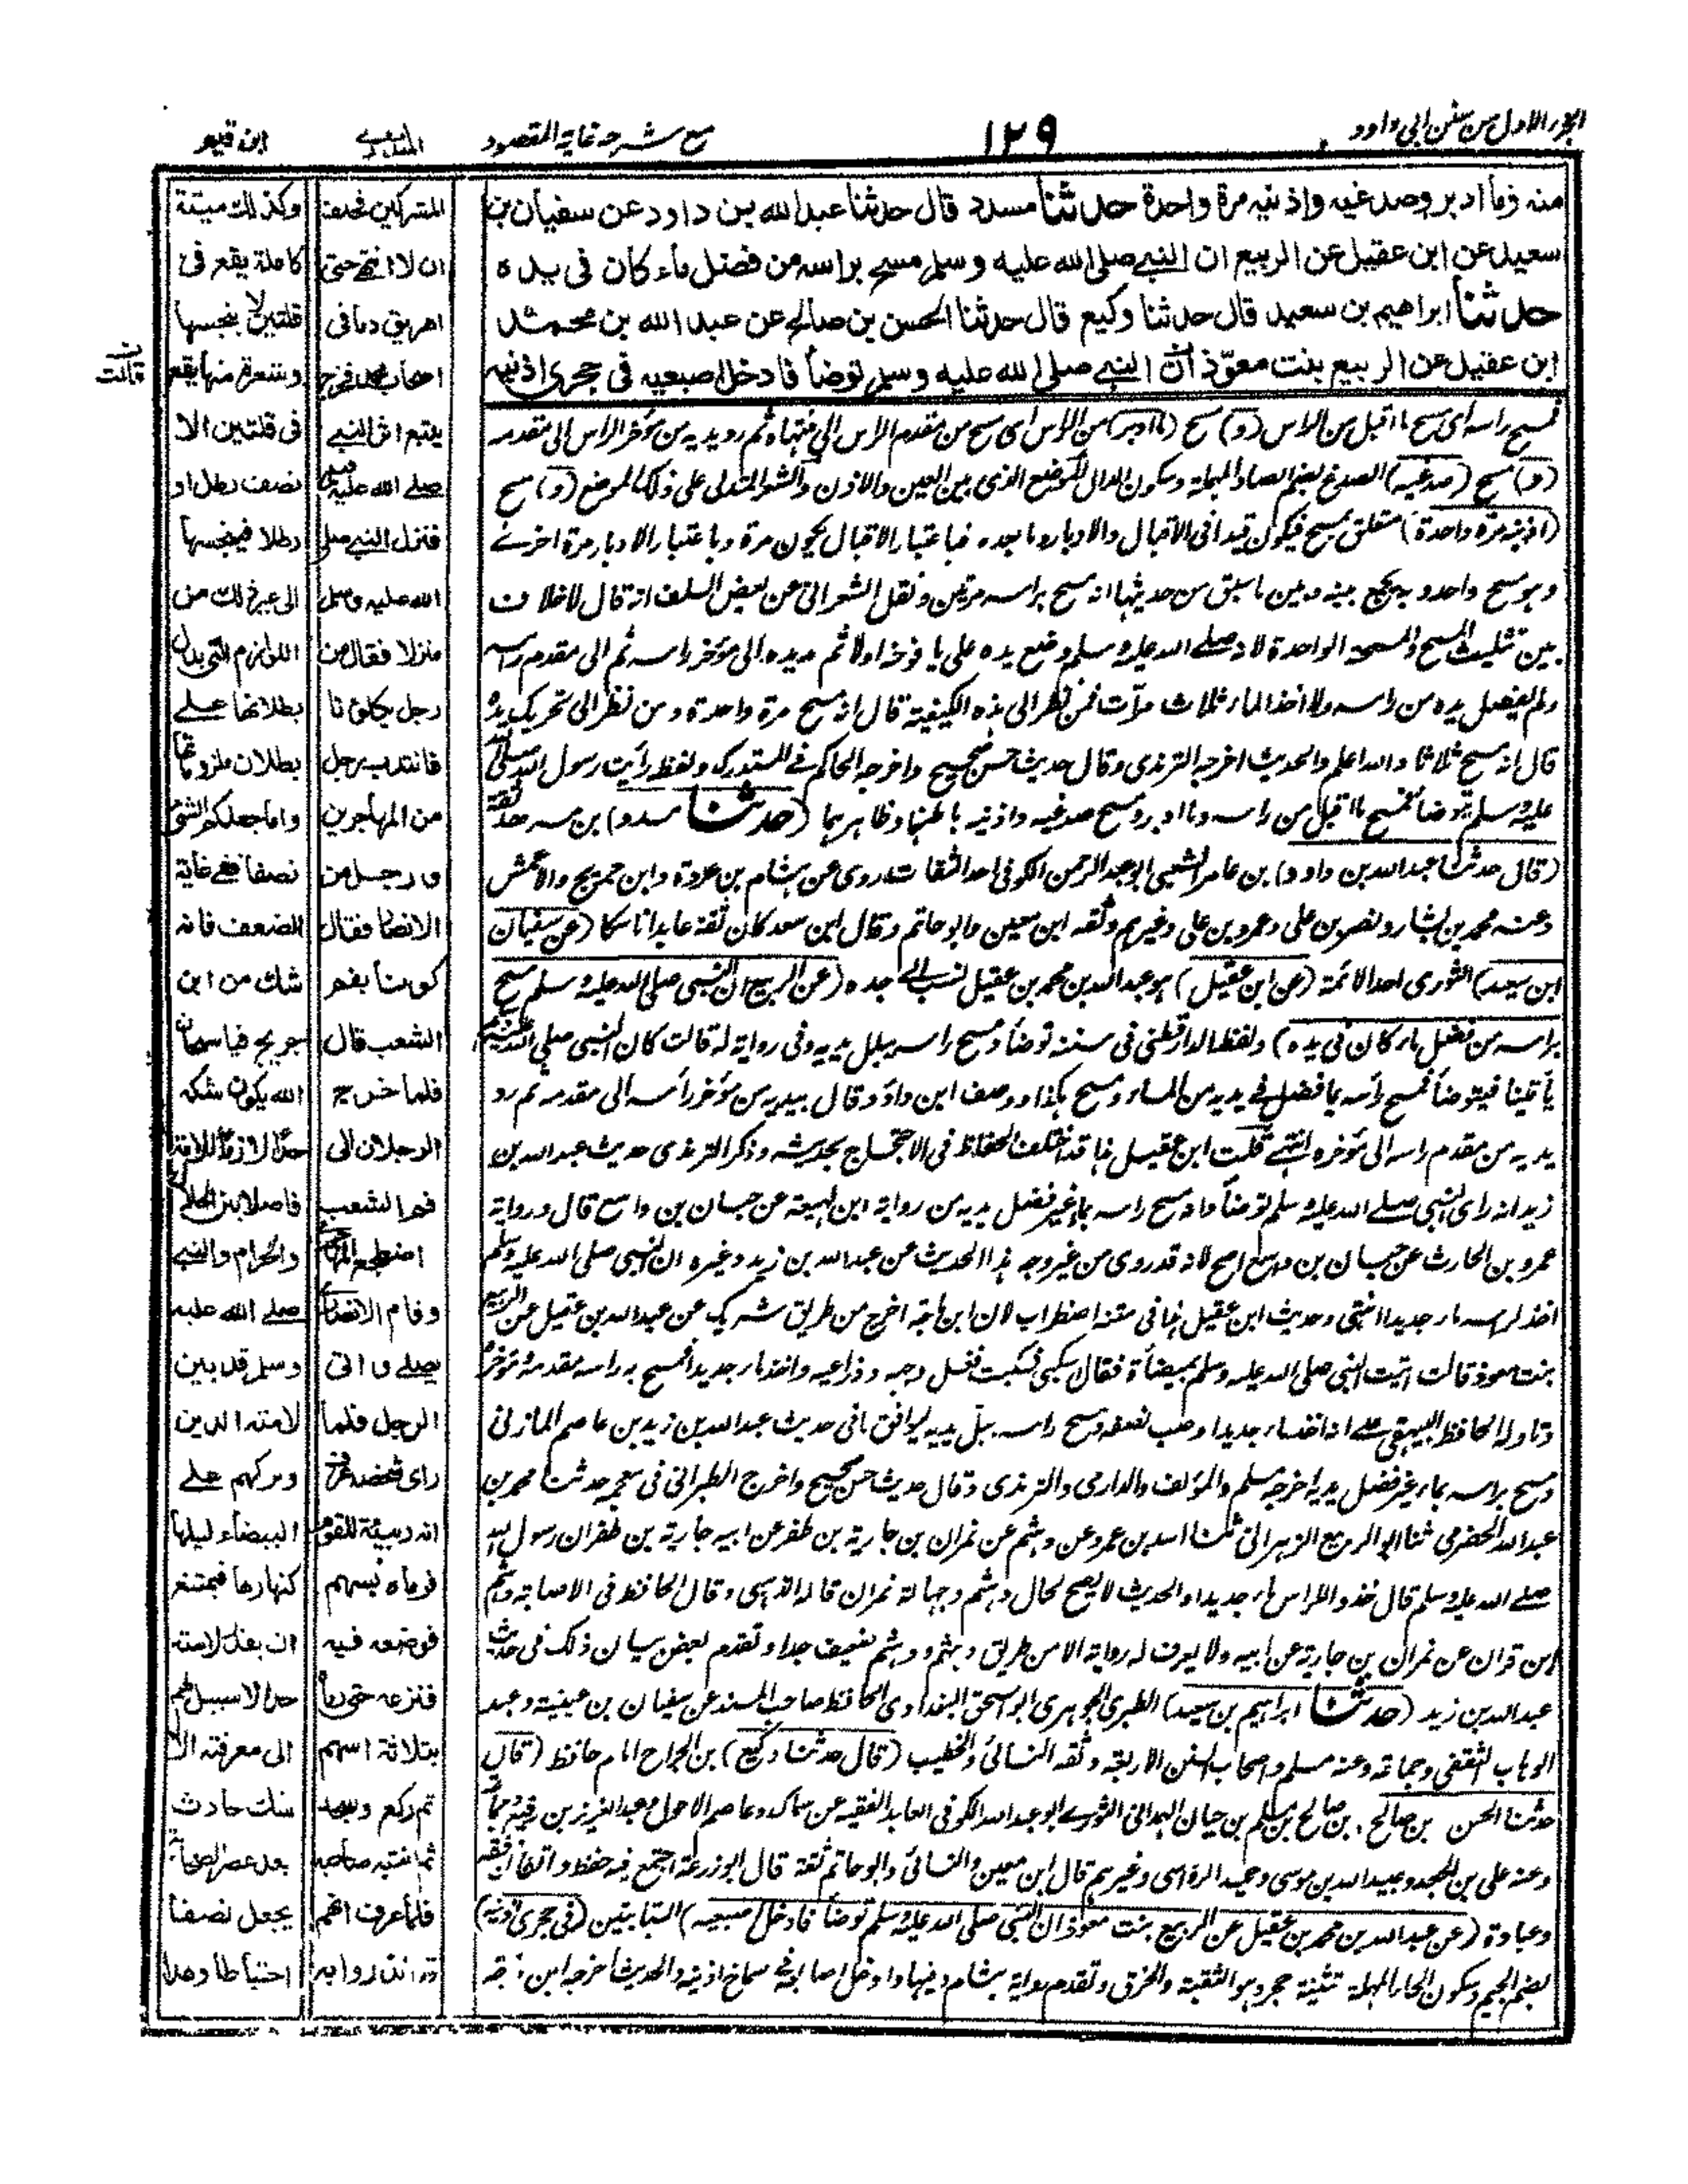 الجزء الاول من سنن ابى داود
١٢٩
مع شرحه غاية المقصود
المنذرى
ابن قيم
منه وما ادبر وصدغيه واذنيه مرة واحدة حدثنا مسدد قال حدثنا عبد الله بن داود عن سفيان بن
سعيد عن ابن عقيل عن الربيع ان النبي صلى الله عليه وسلم مسح براسه من فضل ماء كان فى يده
حدثنا ابراهيم بن سعيد قال حدثنا وكيع قال حدثنا الحسن بن صالح عن عبد الله بن محمد
ابن عقيل عن الربيع بنت معوّذ ان النبي صلى الله عليه وسلم توضأ فادخل اصبعيه فى جحرى اذنيه
فمسح راسه اى مسح ما اقبل من الراس (و) مسح (ما ادبر) من الراس اى مسح من مقدم الراس الى منتهاه ثم رد يديه من مؤخر الراس الى مقدمه
(و) مسح (صدغيه) الصدغ بضم الصاد المهملة وسكون الدال الموضع الذى بين العين والاذن والشعر المتدلى على ذلك الموضع (و) مسح
(اذنيه مرة واحدة) متعلق بمسح فيكون قيدا فى الاقبال والادبار وما بعده فباعتبار الاقبال يكون مرة وباعتبار الادبار مرة اخرى
وهو مسح واحد وبه يجمع بينه وبين ما سبق من حديثها انه مسح براسه مرتين ونقل الشعرانى عن بعض السلف انه قال لا خلاف
بين تثليث المسح والمسحة الواحدة لانه صلى الله عليه وسلم وضع يده على يافوخه اولا ثم مد يده الى مؤخر راسه ثم الى مقدم راسه
ولم يفصل يده من راسه ولا اخذ الماء ثلاث مرات فمن نظر الى هذه الكيفية قال انه مسح مرة واحدة ومن نظر الى تحريك يده
قال انه مسح ثلاثا والله اعلم والحديث اخرجه الترمذى وقال حديث حسن صحيح واخرجه الحاكم فى المستدرك ولفظه رأيت رسول الله صلى الله
عليه وسلم توضأ فمسح ما اقبل من راسه وما ادبر ومسح صدغيه واذنيه باطنهما وظاهرهما (حدثنا مسدد) بن مسرهد ثقة
(قال حدثنا عبد الله بن داود) بن عامر الشعبى ابو عبد الرحمن الكوفى احد الثقات روى عن هشام بن عروة وابن جريج والاعمش
وعنه محمد بن بشار ونصر بن على وعمرو بن على وغيرهم وثقه ابن معين وابو حاتم وقال ابن سعد كان ثقة عابدا ناسكا (عن سفيان
ابن سعيد) الثورى احد الائمة (عن ابن عقيل) هو عبد الله بن محمد بن عقيل نسب الى جده (عن الربيع ان النبى صلى الله عليه وسلم مسح
براسه من فضل ماء كان فى يده) ولفظ الدارقطنى فى سننه توضأ ومسح راسه ببلل يديه وفى رواية له قالت كان النبى صلى الله عليه وسلم
يأتينا فيتوضأ فمسح رأسه بما فضل فى يديه من الماء ومسح هكذا ووصف ابن داؤد وقال بيديه من مؤخر رأسه الى مقدمه ثم رد
يديه من مقدم راسه الى مؤخره انتهى قلت ابن عقيل هذا قد اختلف الحفاظ فى الاحتجاج بحديثه وذكر الترمذى حديث عبد الله بن
زيد انه راى النبى صلى الله عليه وسلم توضأ وانه مسح راسه بماء غير فضل يديه من رواية ابن لهيعة عن حبان بن واسع قال ورواية
عمرو بن الحارث عن حبان بن واسع اصح لانه قد روى من غير وجه هذا الحديث عن عبد الله بن زيد وغيره ان النبى صلى الله عليه وسلم
اخذ لراسه ماء جديدا انتهى وحديث ابن عقيل هذا فى متنه اضطراب لان ابن ماجه اخرج من طريق شريك عن عبد الله بن عقيل عن الربيع
بنت معوذ قالت اتيت النبى صلى الله عليه وسلم بميضأة فقال اسكبى فسكبت فغسل وجهه وذراعيه واخذ ماء جديدا فمسح به راسه مقدمه ومؤخره
وتاوله الحافظ البيهقى على انه اخذ ماء جديدا وصب نصفه ومسح راسه ببلل يديه ليوافق ما فى حديث عبد الله بن زيد بن عاصم المازنى
ومسح براسه بماء غير فضل يديه اخرجه مسلم والمؤلف والدارمى والترمذى وقال حديث حسن صحيح واخرج الطبرانى فى معجمه حدثنا محمد بن
عبد الله الحضرمى ثنا ابو الربيع الزهرانى ثنا اسد بن عمرو عن دهثم عن نمران بن جارية بن ظفر عن ابيه جارية بن ظفر ان رسول الله
صلى الله عليه وسلم قال خذوا للراس ماء جديدا والحديث لا يصح لحال دهثم وجهالة نمران قاله الذهبى وقال الحافظ فى الاصابة دهثم
ابن قران عن نمران بن جارية عن ابيه ولا يعرف له رواية الا من طريق دهثم ودهثم ضعيف جدا وتقدم بعض بيان ذلك فى حديث
عبد الله بن زيد (حدثنا ابراهيم بن سعيد) الطبرى الجوهرى ابو اسحق البغدادى الحافظ صاحب المسند عن سفيان بن عيينة وعبد
الوهاب الثقفى وجماعة وعنه مسلم واصحاب السنن الاربعة وثقه النسائى والخطيب (قال حدثنا وكيع) بن الجراح امام حافظ (قال
حدثنا الحسن بن صالح) بن صالح بن مسلم بن حيان الهمدانى الثورى ابو عبد الله الكوفى العابد الفقيه عن سماك وعاصم الاحول وعبد العزيز بن رفيع
وعنه على بن الجعد وعبيد الله بن موسى وحميد الرواسى وغيرهم قال ابن معين والنسائى وابو حاتم ثقة قال ابو زرعة اجتمع فيه حفظ واتقان وفقه
وعبادة (عن عبد الله بن محمد بن عقيل عن الربيع بنت معوذ ان النبى صلى الله عليه وسلم توضأ فادخل اصبعيه) السبابتين (فى جحرى اذنيه)
بضم الجيم وسكون الحاء المهملة تثنية جحر وهو الثقبة والخرق وتقدم رواية هشام وفيها وادخل اصابعه فى صماخ اذنيه والحديث اخرجه ابن ماجه
المشركين فحلف
ان لا انتهى حتى
اهريق دما فى
اصحاب محمد فخرج
يتبع اثر النبي
صلى الله عليه وسلم
فنزل النبي صلى
الله عليه وسلم
منزلا فقال من
رجل يكلؤنا
فانتدب رجل
من المهاجرين
ورجل من
الانصار فقال
كونا بفم
الشعب قال
فلما خرج
الرجلان الى
فم الشعب
اضطجع المهاجرى
وقام الانصارى
يصلى واتى
الرجل فلما
راى شخصه عرف
انه ربيئة للقوم
فرماه بسهم
فوضعه فيه
فنزعه حتى رماه
بثلاثة اسهم
ثم ركع وسجد
ثم انتبه صاحبه
فلما عرف انهم
قد نذروا به
وكذلك ميتة
كاملة يقع فى
قلتين لا ينجسها
وشعرة منها يقع
فى قلتين الا
نصف رطل او
رطلا فينجسها
الى غير ذلك من
اللوازم التى يدل
بطلانها على
بطلان ملزوماتها
واما جعلكم الشئ
نصفا ففى غاية
الضعف فانه
شك من ابن
جريج فيا سبحان
الله يكون شكه
حدا لازما للامة
فاصلا بين الحلال
والحرام والنبي
صلى الله عليه
وسلم قد بين
لامته الدين
وتركهم على
البيضاء ليلها
كنهارها فيمتنع
ان يقدر لامته
حدا لا سبيل لهم
الى معرفته الا
شك حادث
بعد عصر الصحابة
يجعل نصفا
احتياطا وهذا
قالت